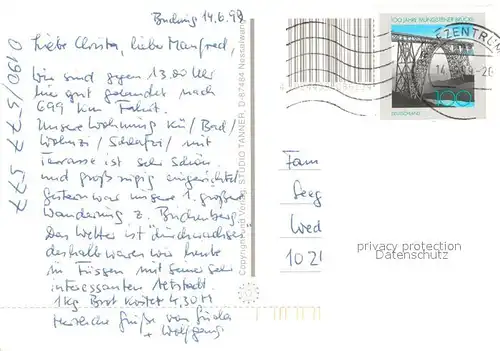 Buching 14.6.98
Liebe Christa, lieber Manfred,
wir sind gegen 13.00 Uhr
hier gut gelandet nach
699 km Fahrt.
Unsere Wohnung Kü/Bad/
Wohnzi/Schlafzi/mit
Terrasse ist sehr schön
und großzügig eingerichtet
Gestern war unsere 1. größere
Wanderung z. Buchenberg.
Das Wetter ist "durchwachsen"
deshalb waren wir heute
in Füssen mit seiner sehr
interessanten Altstadt.
1kg Brot kostet 4,30 M
Herzliche Grüße von
+ Wolfgang
0190/577577
Copyright und Verlag: STUDIO TANNER, D-87484 Nesselwang
100 JAHRE MÜNGSTENER BRÜCKE
100
DEUTSCHLAND
ZENTRUM
14
Fam
Seeg
Wed
102
privacy protection
Datenschutz